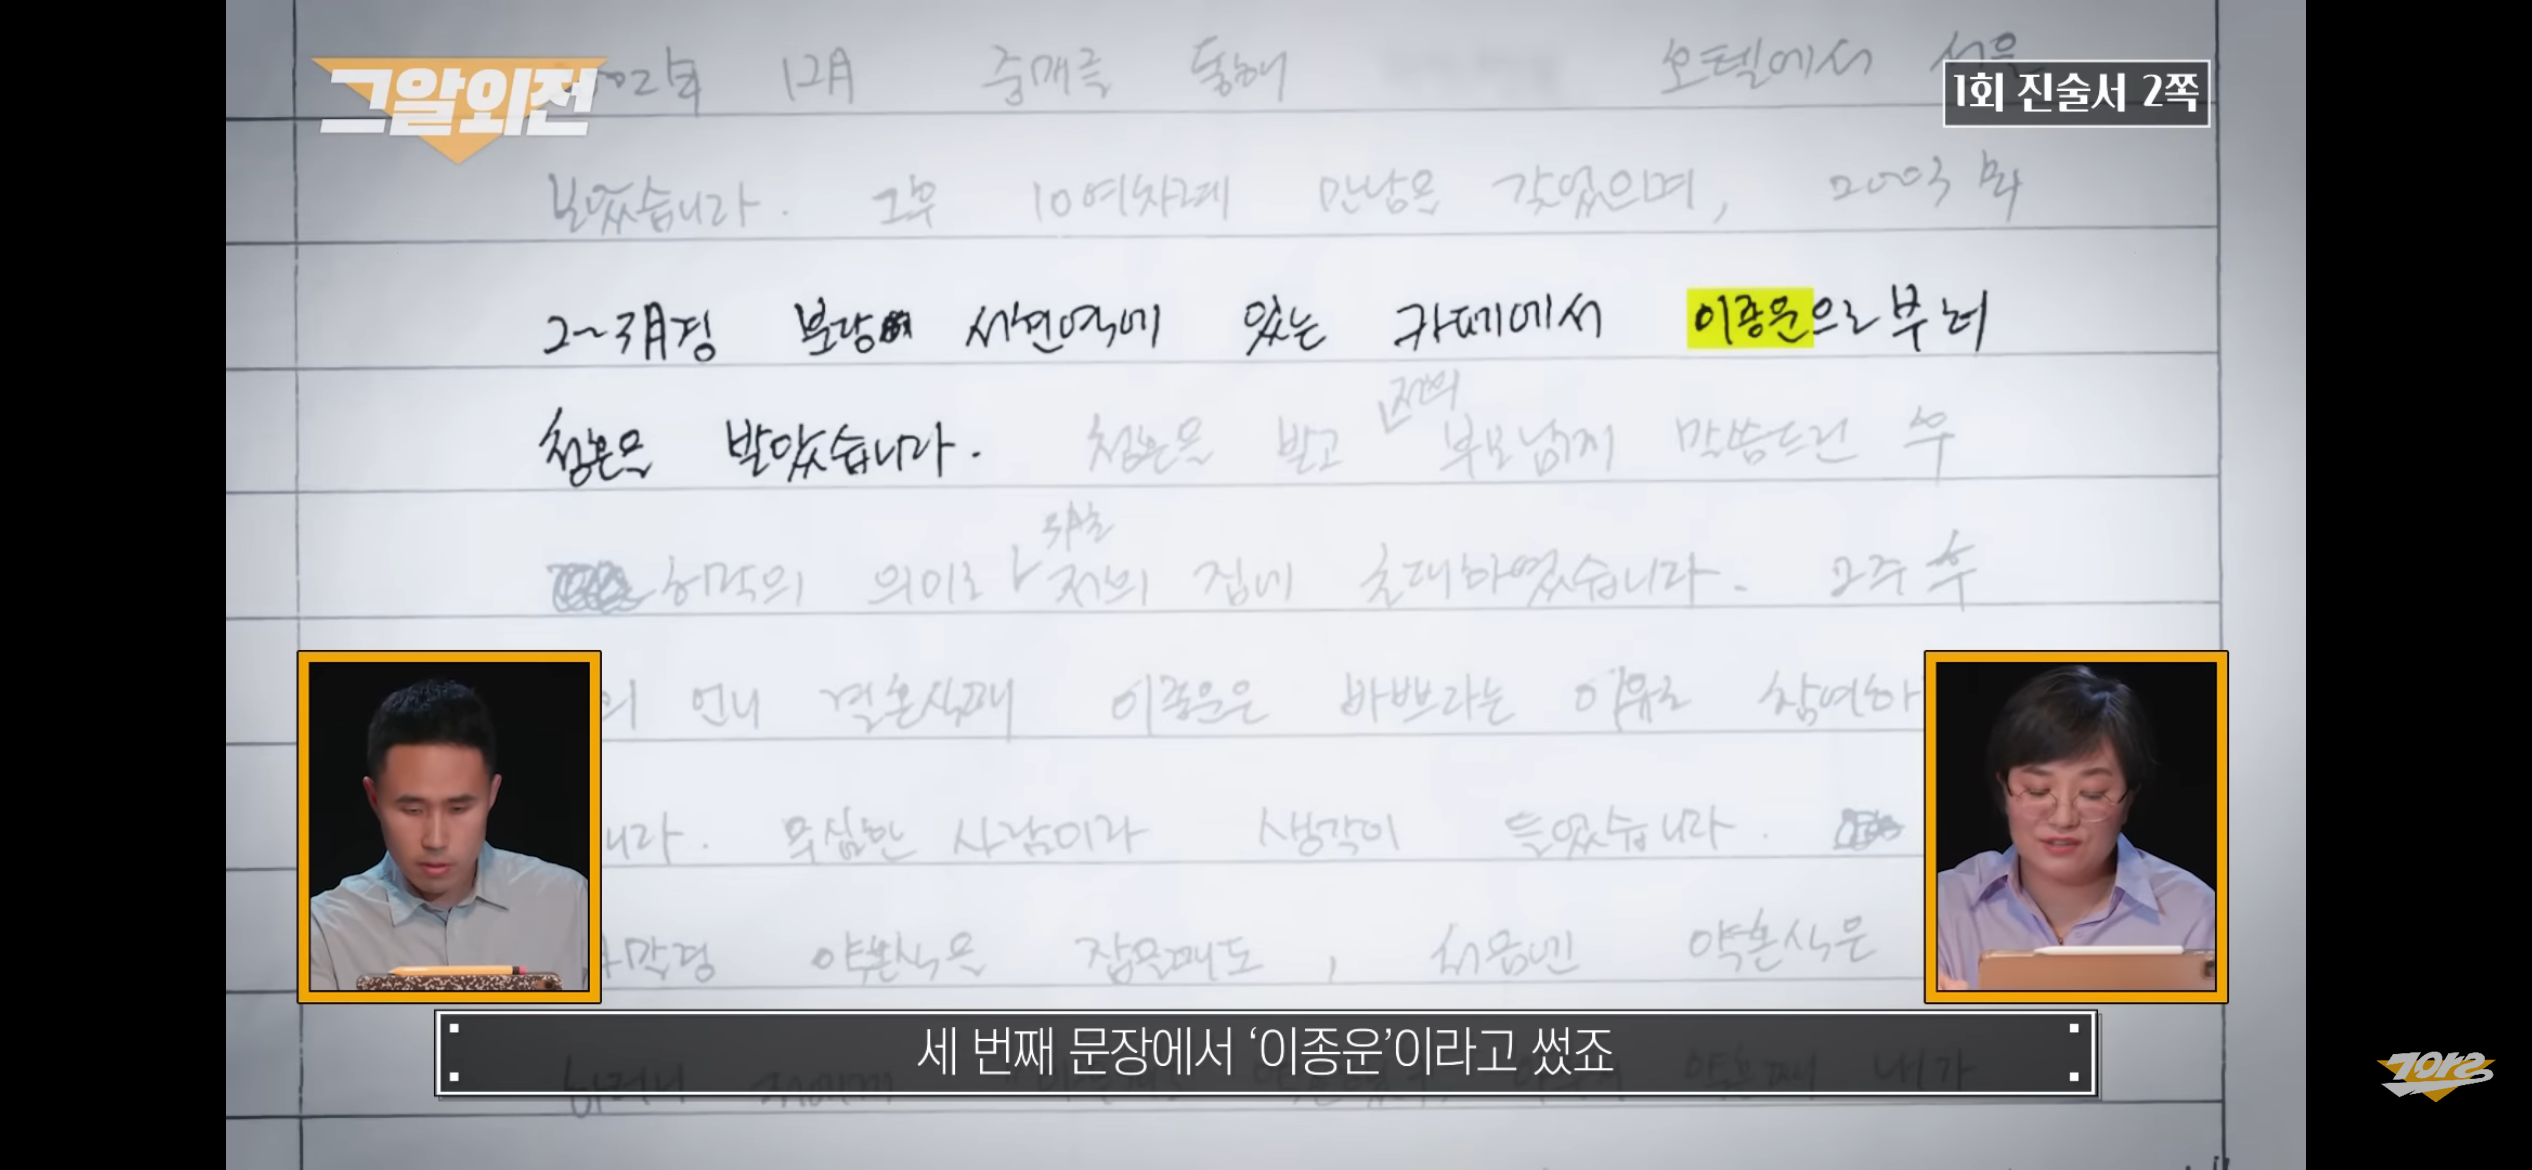 그알외전
1회 진술서 2쪽
12月 중매를 통해 호텔에서 선을
보았습니다. 그후 10여차례 만남을 갖었으며, 2003
2~3月경 분당 서현역에 있는 카페에서 이종운으로부터
청혼을 받았습니다. 청혼을 받고 저의 부모님께 말씀드린 후
허락의 의미로 저의 집에 초대하였습니다. 2주 후
의 언니 결혼식때 이종운은 바쁘다는 이유로 참여하
니다. 무심한 사람이라 생각이 들었습니다.
약혼식을 잡을때도, 처음엔 약혼식은
세 번째 문장에서 '이종운'이라고 썼죠
그알